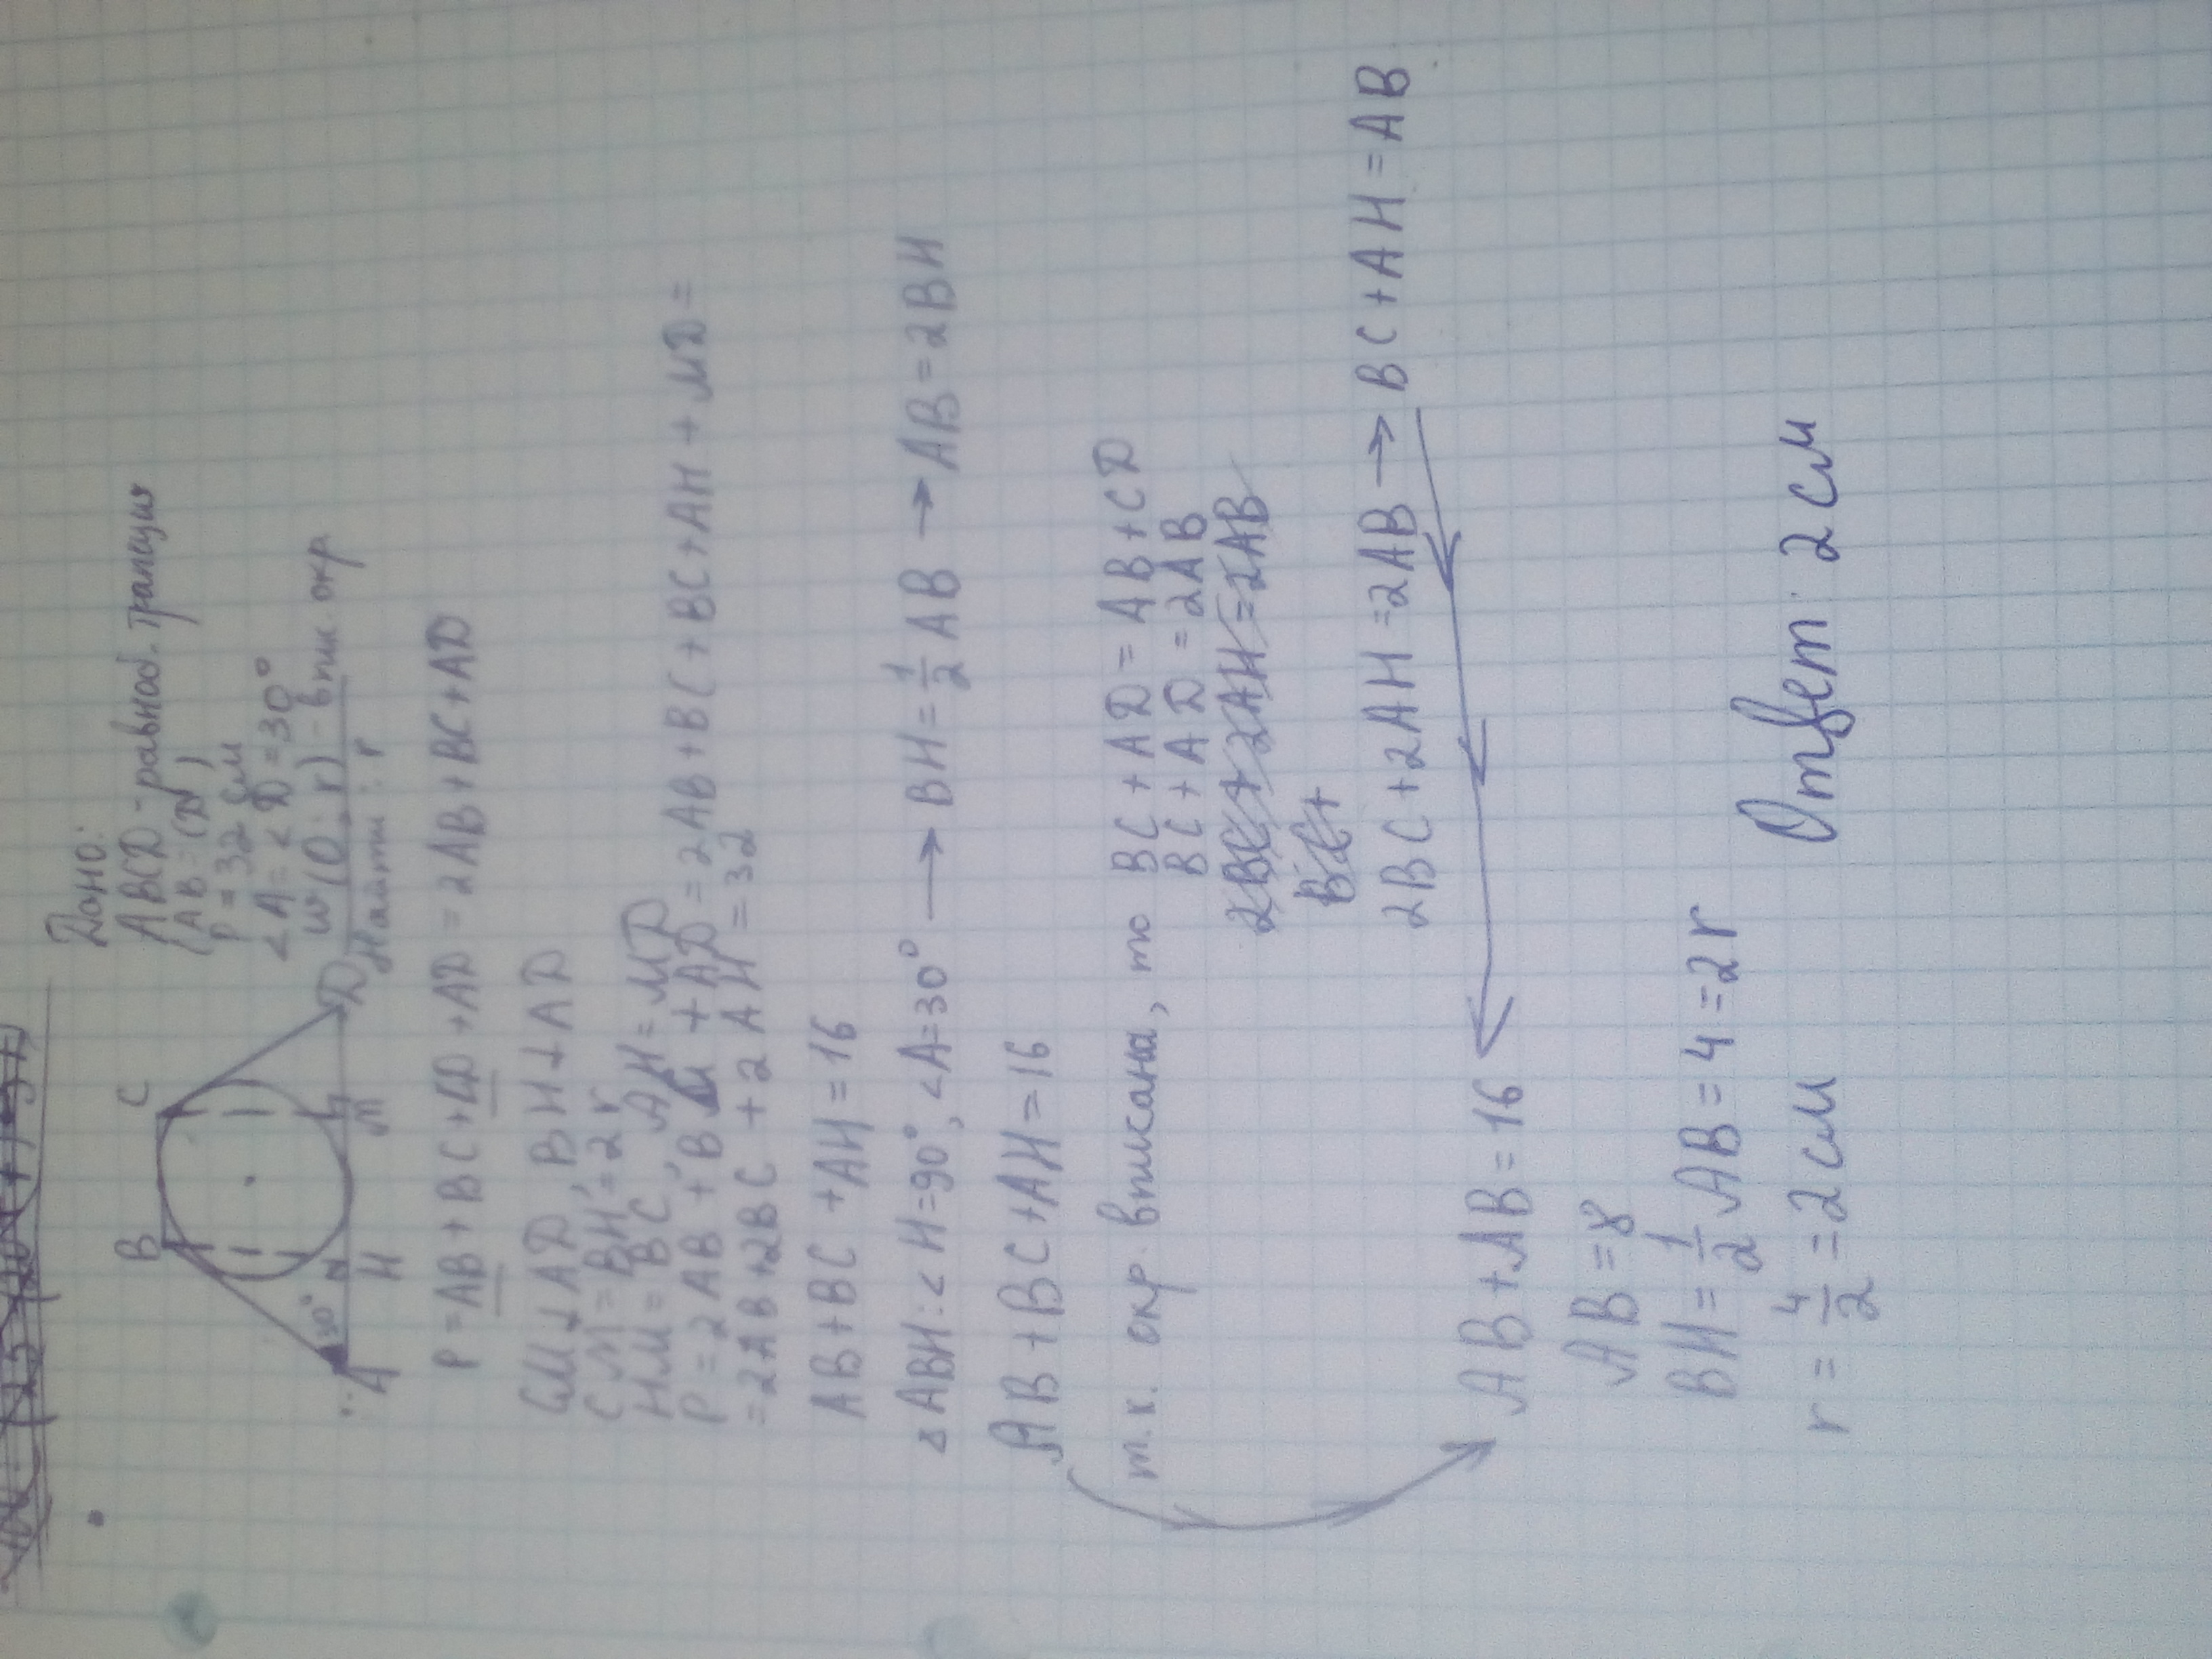 B C
30°
A H M D
Дано:
ABCD - равноб. трапеция
(AB = CD)
P = 32 см
<A = <D = 30°
w(O; r) - впис. окр
Найти: r
P = AB + BC + CD + AD = 2AB + BC + AD
CM ⊥ AD, BH ⊥ AD
CM = BH = 2r
HM = BC, AH = MD
P = 2AB + BC + AD = 2AB + BC + BC + AH + MD =
= 2AB + 2BC + 2AH = 32
AB + BC + AH = 16
△ABH: <H = 90°, <A = 30° → BH = 1/2 AB → AB = 2BH
AB + BC + AH = 16
т.к. окр. вписана, то BC + AD = AB + CD
BC + AD = 2AB
2BC + 2AH = 2AB
BC +
2BC + 2AH = 2AB → BC + AH = AB
AB + AB = 16
AB = 8
BH = 1/2 AB = 4 = 2r
r = 4/2 = 2 см
Ответ: 2 см